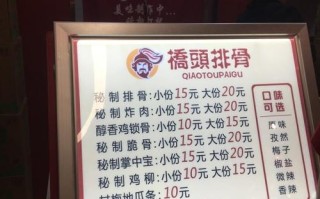 美味制作中...
橋頭排骨
QIAOTOUPAIGU
秘制排骨:小份15元 大份20元
秘制炸肉:小份15元 大份20元
醇香鸡锁骨:小份10元 大份15元
秘制脆骨:小份15元 大份20元
秘制掌中宝:小份15元 大份20元
秘制鸡柳:小份10元 大份15元
甘梅地瓜条:10元
口味
可选
原味
孜然
梅子
椒盐
微辣
香辣